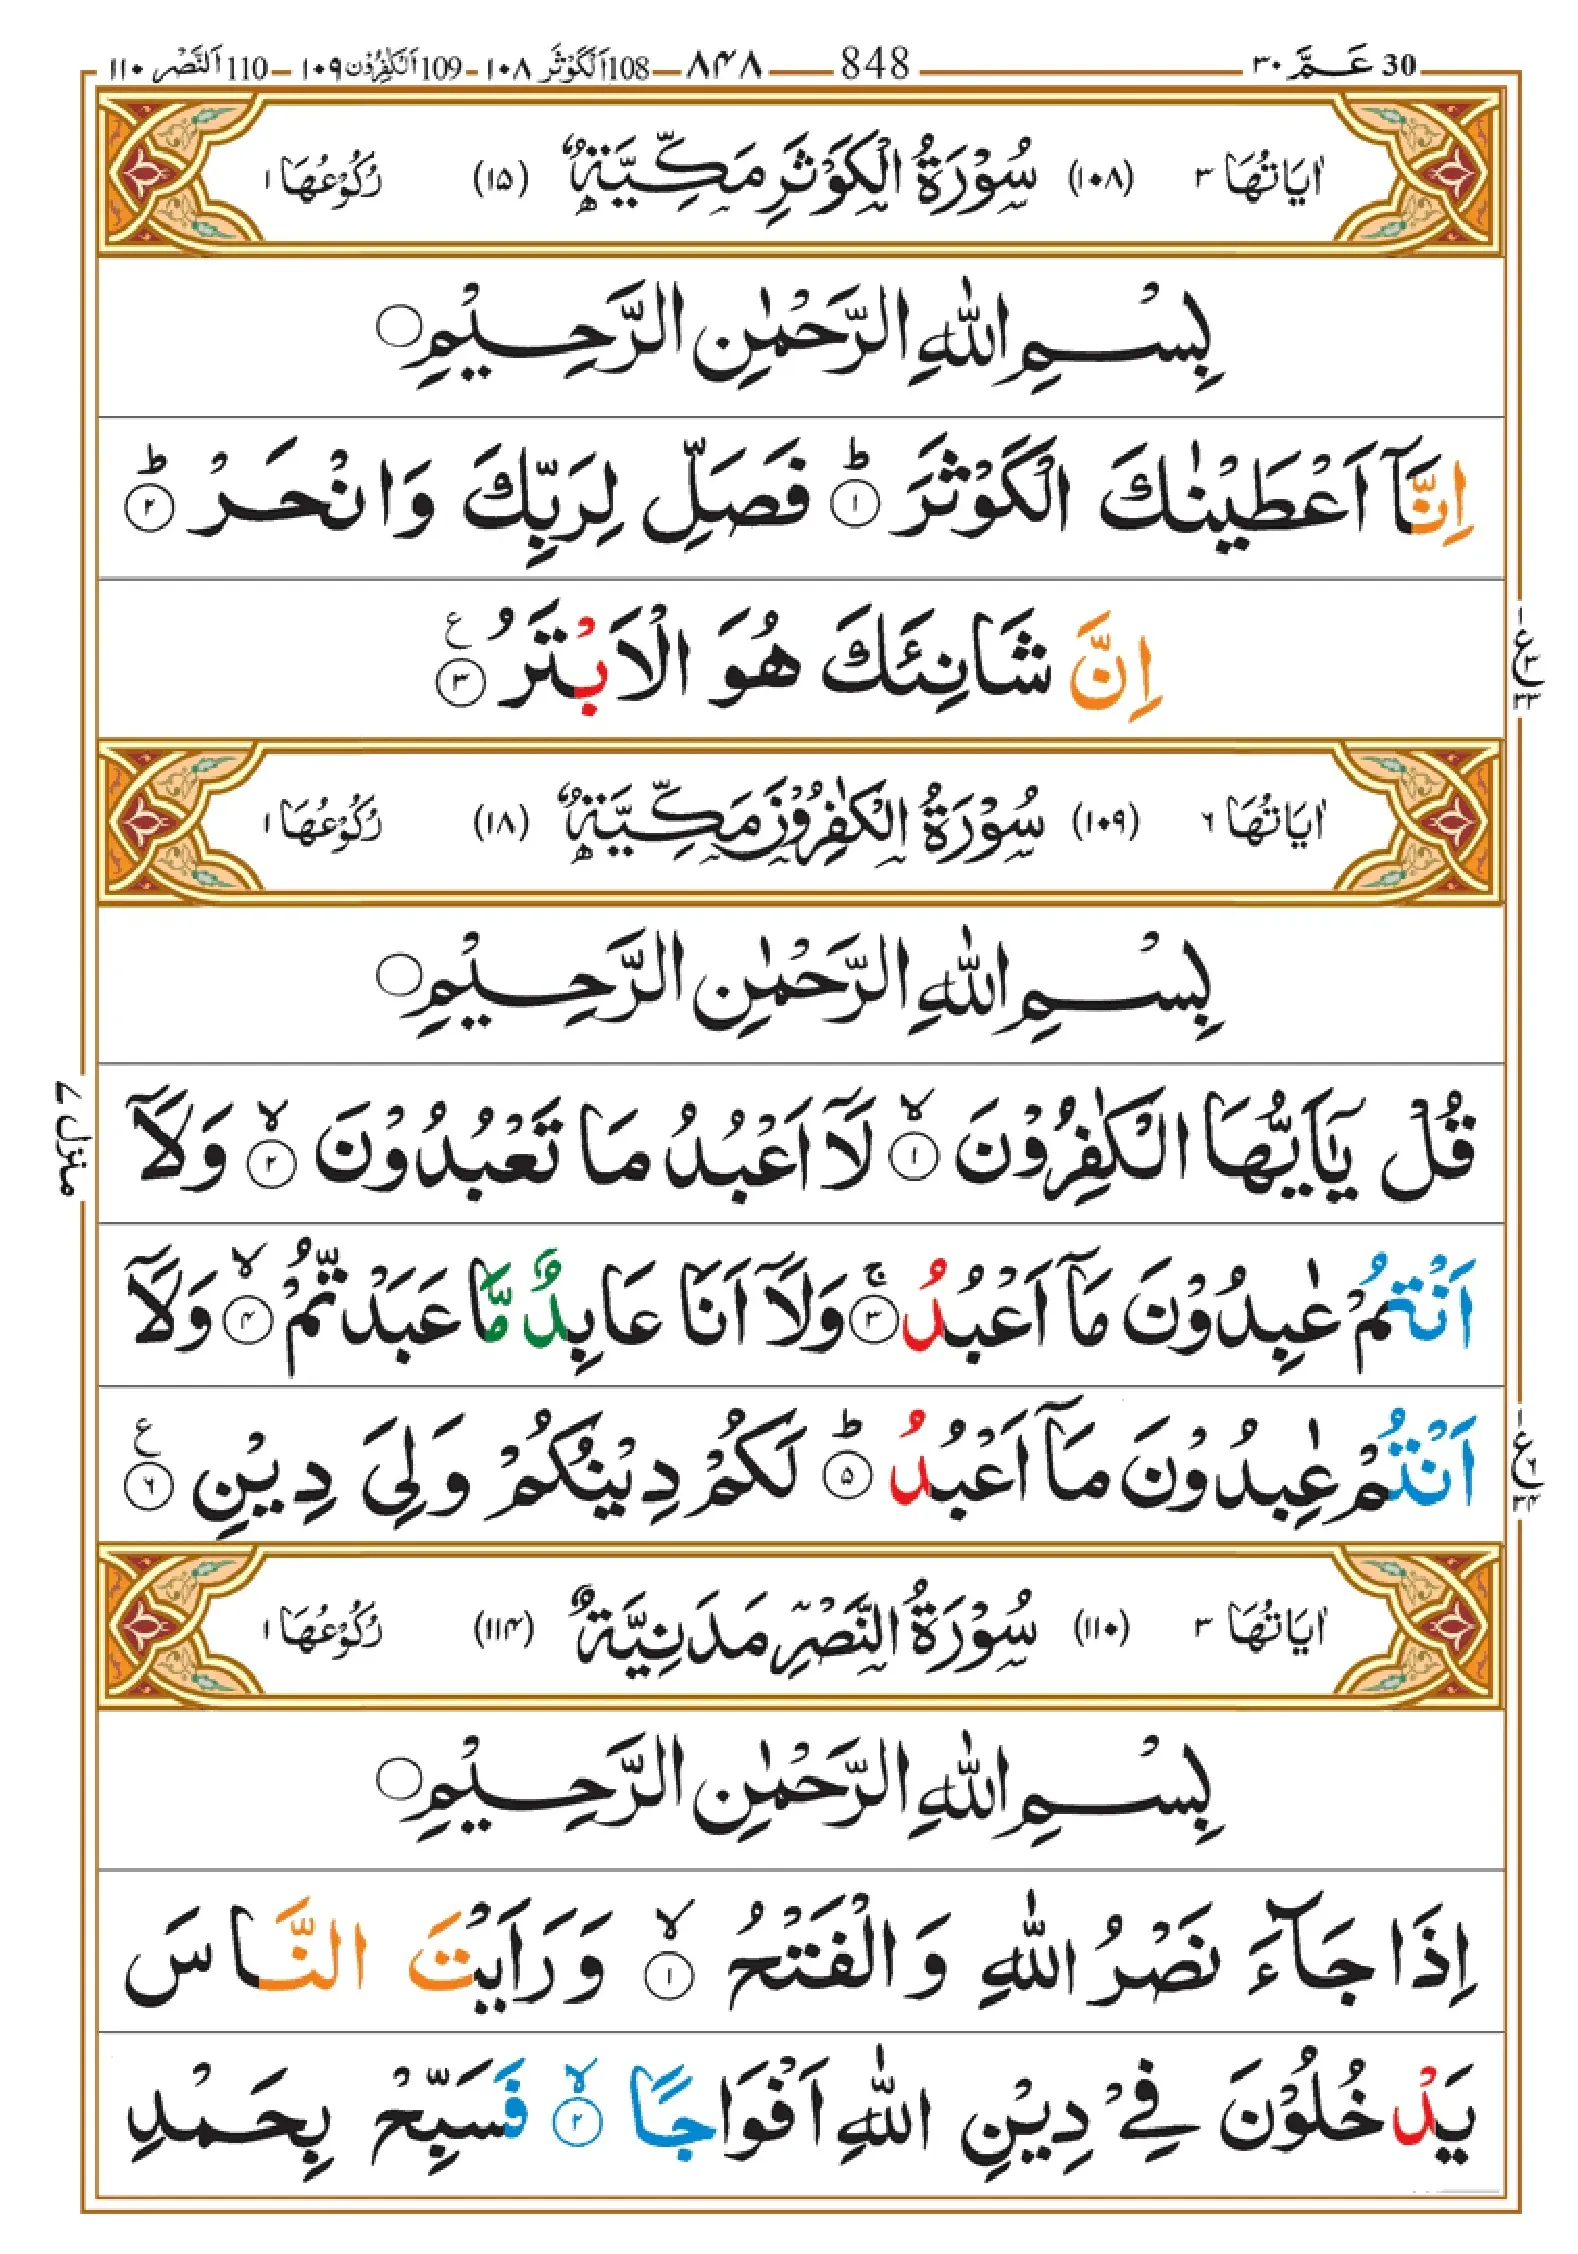 30 عَـمَّ ۳۰ — 848 — ۸۴۸ — 108 اَلْكَوْثَر ۱۰۸ - 109 اَلْكٰفِرُوْن ۱۰۹ — 110 اَلنَّصْر ۱۱۰
اٰيَاتُهَا ۳ (۱۰۸) سُوْرَةُ الْكَوْثَرِ مَكِّيَّةٌ (۱۵) رُكُوْعُهَا ۱
بِسْمِ اللّٰهِ الرَّحْمٰنِ الرَّحِيْمِ ○
اِنَّآ اَعْطَيْنٰكَ الْكَوْثَرَ ؕ ۱ فَصَلِّ لِرَبِّكَ وَانْحَرْ ؕ ۲
اِنَّ شَانِئَكَ هُوَ الْاَبْتَرُ ۳ ع
ع ۱ ۳ ۳۳
اٰيَاتُهَا ۶ (۱۰۹) سُوْرَةُ الْكٰفِرُوْنَ مَكِّيَّةٌ (۱۸) رُكُوْعُهَا ۱
بِسْمِ اللّٰهِ الرَّحْمٰنِ الرَّحِيْمِ ○
قُلْ يٰٓاَيُّهَا الْكٰفِرُوْنَ ۙ ۱ لَآ اَعْبُدُ مَا تَعْبُدُوْنَ ۙ ۲ وَلَآ
منزل ۷
اَنْتُمْ عٰبِدُوْنَ مَآ اَعْبُدُ ۚ ۳ وَلَآ اَنَا عَابِدٌ مَّا عَبَدْتُّمْ ۙ ۴ وَلَآ
اَنْتُمْ عٰبِدُوْنَ مَآ اَعْبُدُ ؕ ۵ لَكُمْ دِيْنُكُمْ وَلِيَ دِيْنِ ۶ ع
ع ۱ ۶ ۳۴
اٰيَاتُهَا ۳ (۱۱۰) سُوْرَةُ النَّصْرِ مَدَنِيَّةٌ (۱۱۴) رُكُوْعُهَا ۱
بِسْمِ اللّٰهِ الرَّحْمٰنِ الرَّحِيْمِ ○
اِذَا جَآءَ نَصْرُ اللّٰهِ وَالْفَتْحُ ۙ ۱ وَرَاَيْتَ النَّاسَ
يَدْخُلُوْنَ فِيْ دِيْنِ اللّٰهِ اَفْوَاجًا ۙ ۲ فَسَبِّحْ بِحَمْدِ